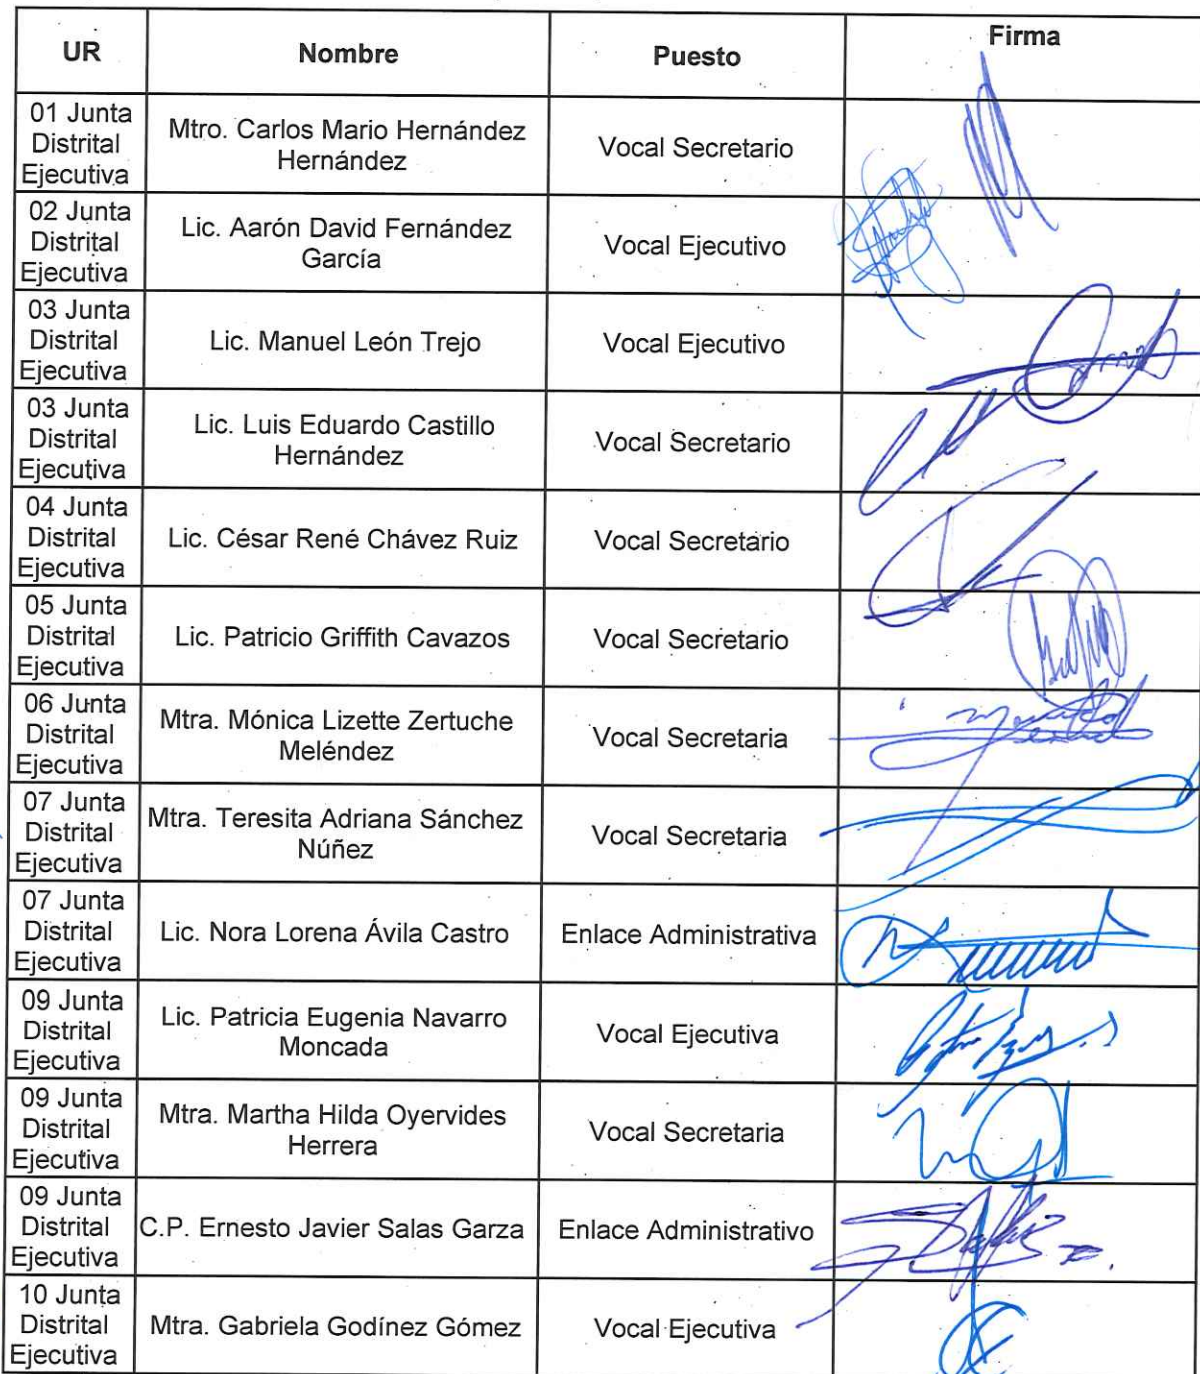 UR Nombre Puesto Firma
01 Junta
Distrital
Ejecutiva
Mtro. Carlos Mario Hernández
Hernández
Vocal Secretario
02 Junta
Distrital
Ejecutiva
Lic. Aarón David Fernández
García
Vocal Ejecutivo
03 Junta
Distrital
Ejecutiva
Lic. Manuel León Trejo
Vocal Ejecutivo
03 Junta
Distrital
Ejecutiva
Lic. Luis Eduardo Castillo
Hernández
Vocal Secretario
04 Junta
Distrital
Ejecutiva
Lic. César René Chávez Ruiz
Vocal Secretario
05 Junta
Distrital
Ejecutiva
Lic. Patricio Griffith Cavazos
Vocal Secretario
06 Junta
Distrital
Ejecutiva
Mtra. Mónica Lizette Zertuche
Meléndez
Vocal Secretaria
07 Junta
Distrital
Ejecutiva
Mtra. Teresita Adriana Sánchez
Núñez
Vocal Secretaria
07 Junta
Distrital
Ejecutiva
Lic. Nora Lorena Ávila Castro
Enlace Administrativa
09 Junta
Distrital
Ejecutiva
Lic. Patricia Eugenia Navarro
Moncada
Vocal Ejecutiva
09 Junta
Distrital
Ejecutiva
Mtra. Martha Hilda Oyervides
Herrera
Vocal Secretaria
09 Junta
Distrital
Ejecutiva
C.P. Ernesto Javier Salas Garza
Enlace Administrativo
10 Junta
Distrital
Ejecutiva
Mtra. Gabriela Godínez Gómez
Vocal Ejecutiva